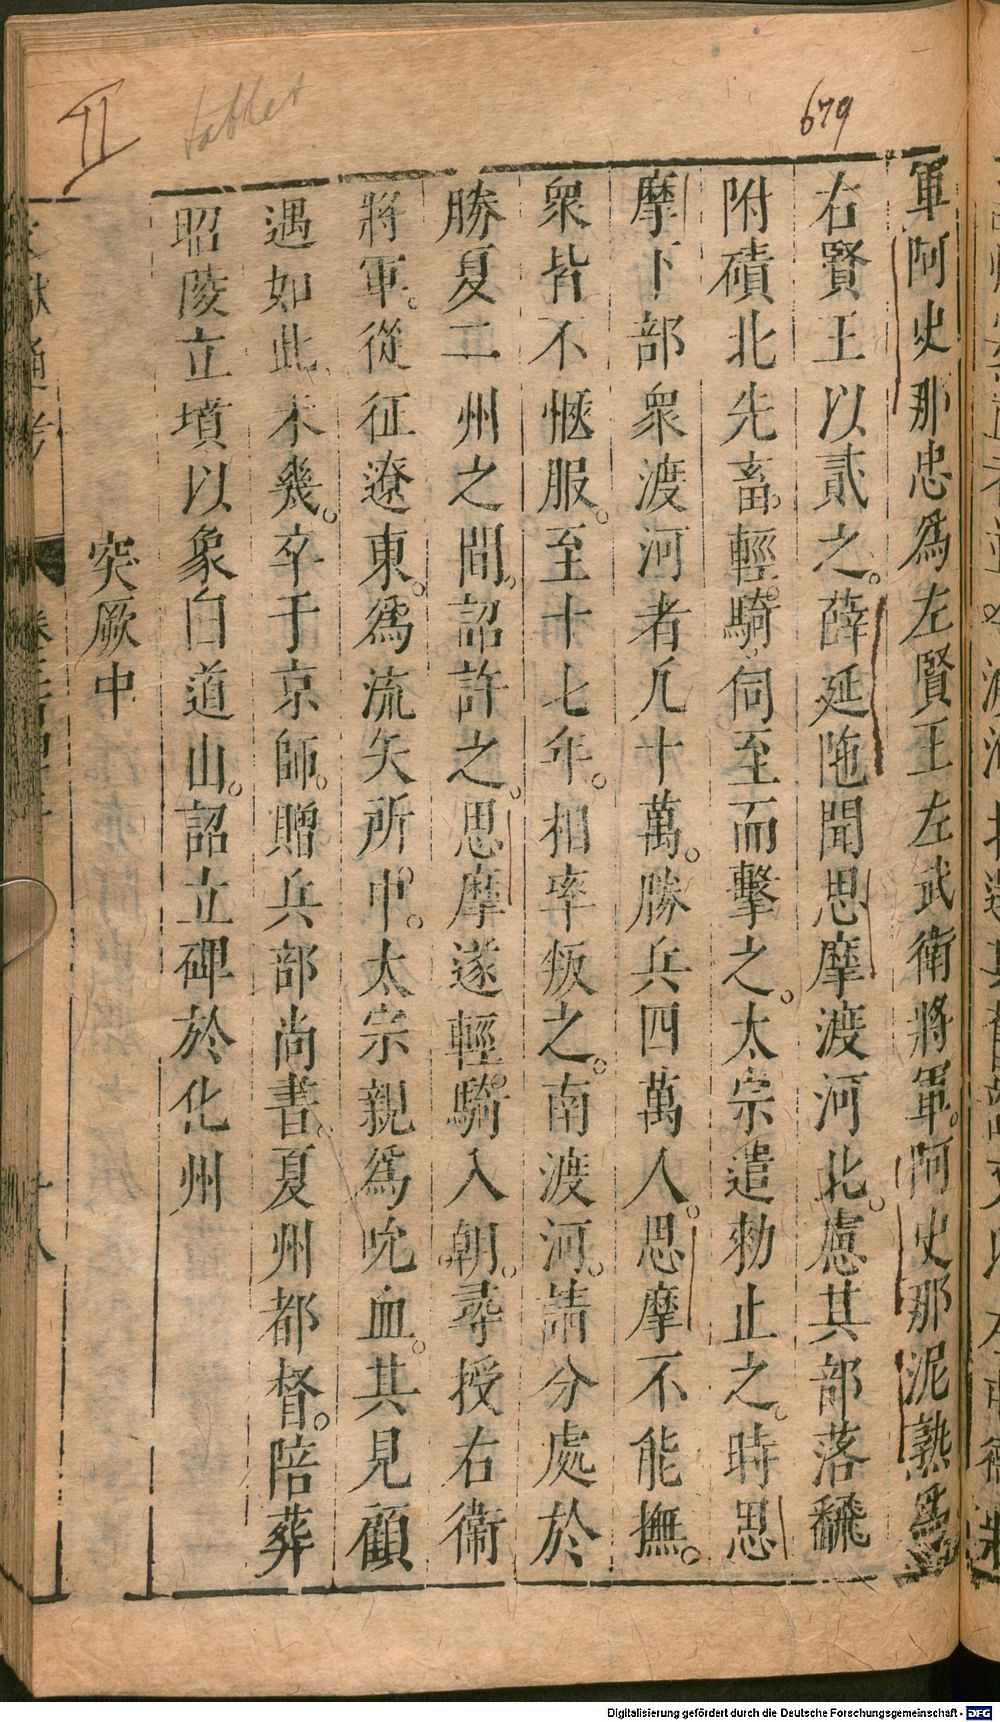 II
tablet
679
軍阿史那忠爲左賢王左武衛將軍。阿史那泥熟爲
右賢王以貳之。薛延陁聞思摩渡河北。慮其部落飜
附磧北先畜。輕騎伺至而擊之。太宗遣勑止之。時思
摩下部衆渡河者凡十萬。勝兵四萬人。思摩不能撫。
衆皆不愜服。至十七年。相率叛之。南渡河。請分處於
勝夏二州之間。詔許之。思摩遂輕騎入朝。尋授右衛
將軍。從征遼東。爲流矢所中。太宗親爲吮血。其見顧
遇如此。未幾。卒于京師。贈兵部尚書。夏州都督。陪葬
昭陵立墳以象白道山。詔立碑於化州
突厥中
文獻通考
Digitalisierung gefördert durch die Deutsche Forschungsgemeinschaft - DFG